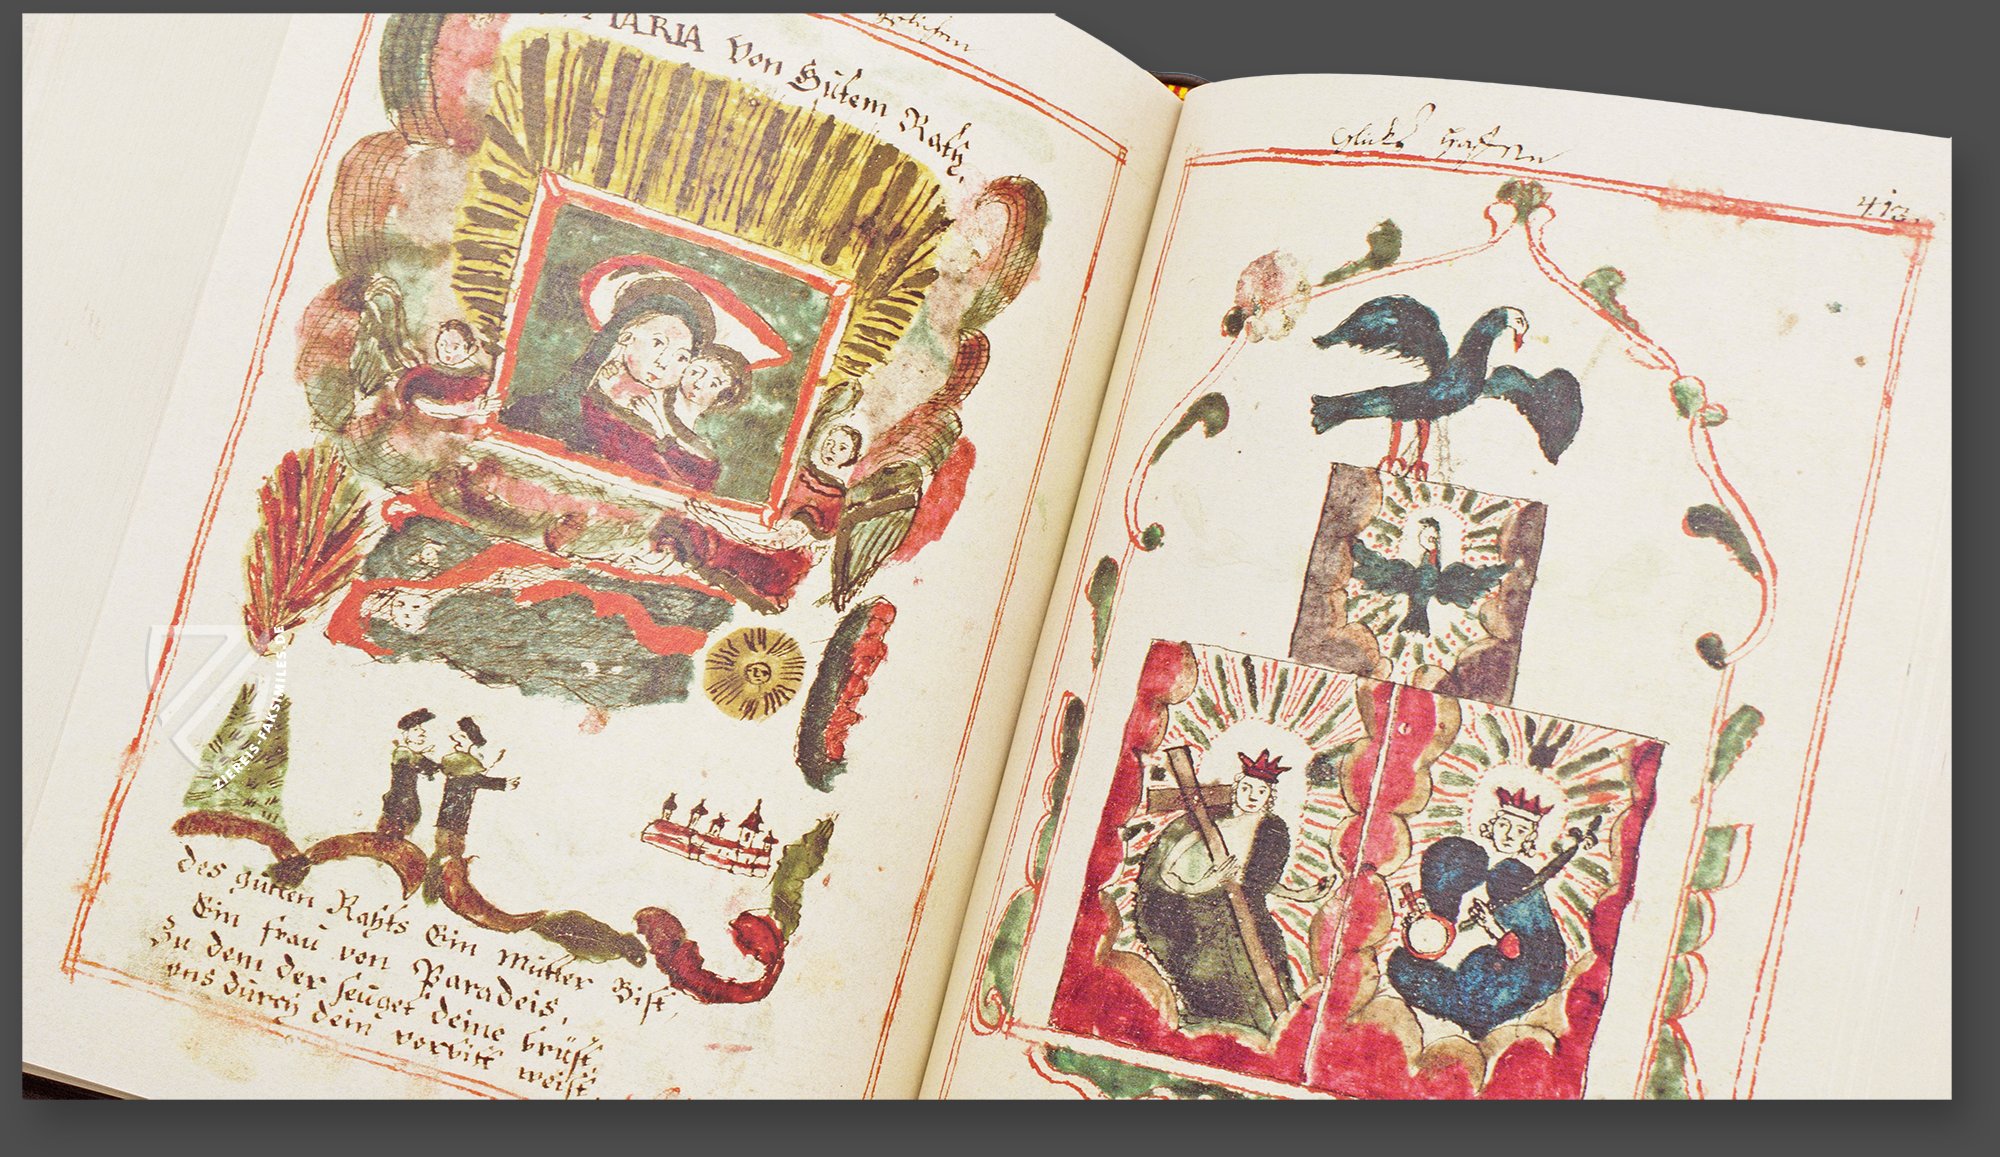 MARIA Von Gütem Rath,
des gütten Rahts Ein Mütter Bist,
Ein frau von Paradeis,
Zu dem der seüget deine brüst
uns dürch dein vorbitt weist
Glüks
413.
ZIEREIS-FAKSIMILES.DE